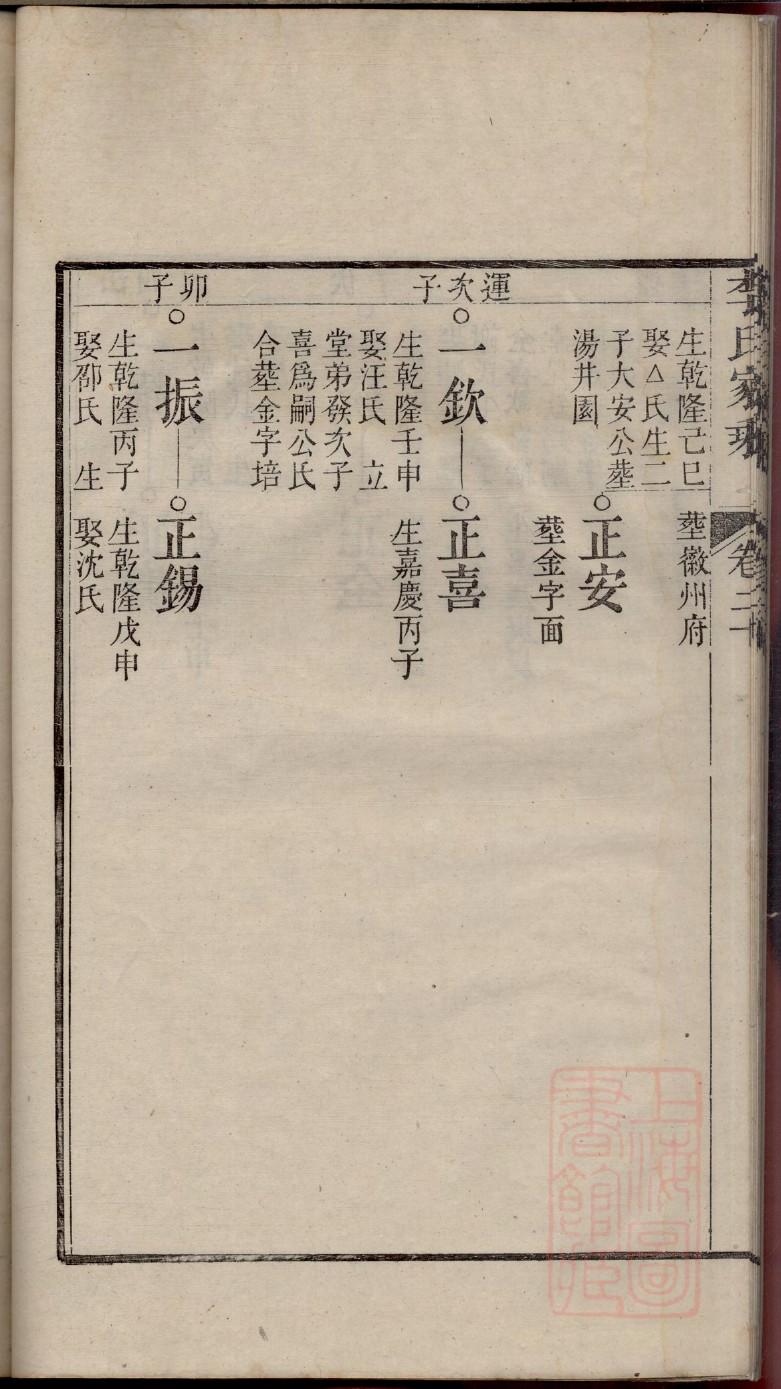 卷二十
生乾隆己巳
娶△氏生二
子大安公塟
湯井園
塟徽州府
○正安
塟金字面
運次子
○一欽
生乾隆壬申
娶汪氏 立
堂弟發次子
喜爲嗣公氏
合塟金字培
○正喜
生嘉慶丙子
卯子
○一振
生乾隆丙子
娶邵氏 生
○正錫
生乾隆戊申
娶沈氏
上海圖
書館藏